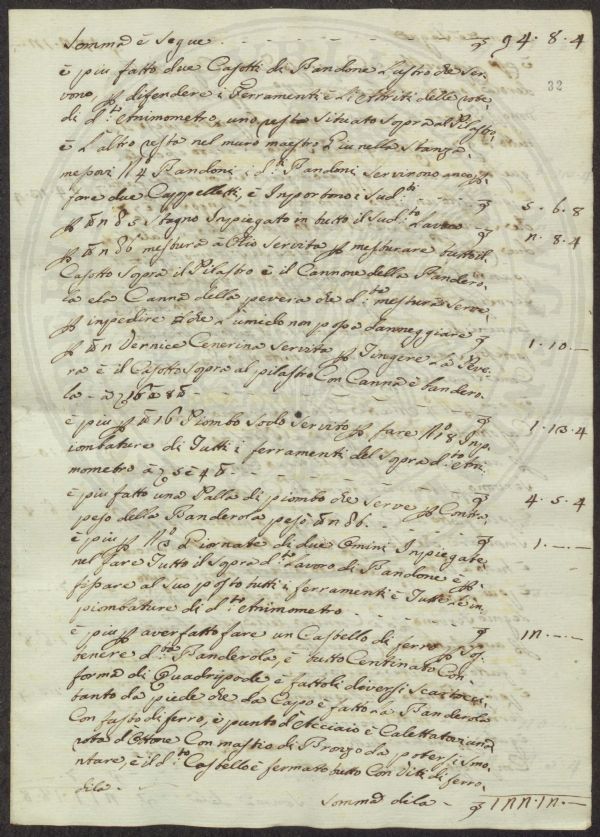 Somma è Segue - - - - - £ 94. 8. 4
32
è piu fatto due Casotti di Bandone Lastro che Ser
vono, p difendere i Ferramenti è Li Attriti delle rote
di d.to Animometro, uno resta Situato Sopra al Pilastro
è L'altro resta nel muro maestro Piu nella Stanza
messovi N° 4 Bandoni: i d.i Bandoni Servirono anco p
fare due Cappelletti, è Inportono i Sud.ti - - £ 5. 6. 8
p Stagno Inpiegato in tutto il Sud.to Lavoro £ 8. 4
p mestura à Olio Servita p mesturare tutto il
Casotto Sopra il Pilastro è il Cannone della Bandero
la e la Canna della pevera che d.ta mestura Serve
p inpedire che L'umido non possa danneggiare £ 1. 10 -
p Vernice Cenerina Servita p Tingere La Peve
ra è il Casotto Sopra al pilastro Con Canna è bandero
la
è piu p 16 Piombo Sodo Servito p fare N° 18 Inp
iombature di Tutti i ferramenti del Sopra d.to Ani
mometro à
è piu fatto una Palla di piombo che Serve p Contra
peso della Banderola pesò £ 4. 5. 4
è piu p Giornate di due Omini Inpiegate £ 1. - -
nel fare Tutto il Sopra d.to Lavoro di Bandone è p
fissare al Suo posto tutti i ferramenti è Tutte Le in
piombature di d.to Animometro - - -
è piu p aver fatto fare un Castello di ferro p Sos
tenere d.ta Banderola, è tutto Centinato Con
forma di Quadripode è fattoli diversi
tanto da piede che da Capo è fatto La Banderola
Con fusto di ferro, è punto d'Acciaio è Calettatovi una
rota d'Ottone Con mastio di Bronzo da potersi Smo
ntare, è il d.to Castello è fermato tutto Con Viti di ferro
di la - Somma di la - £